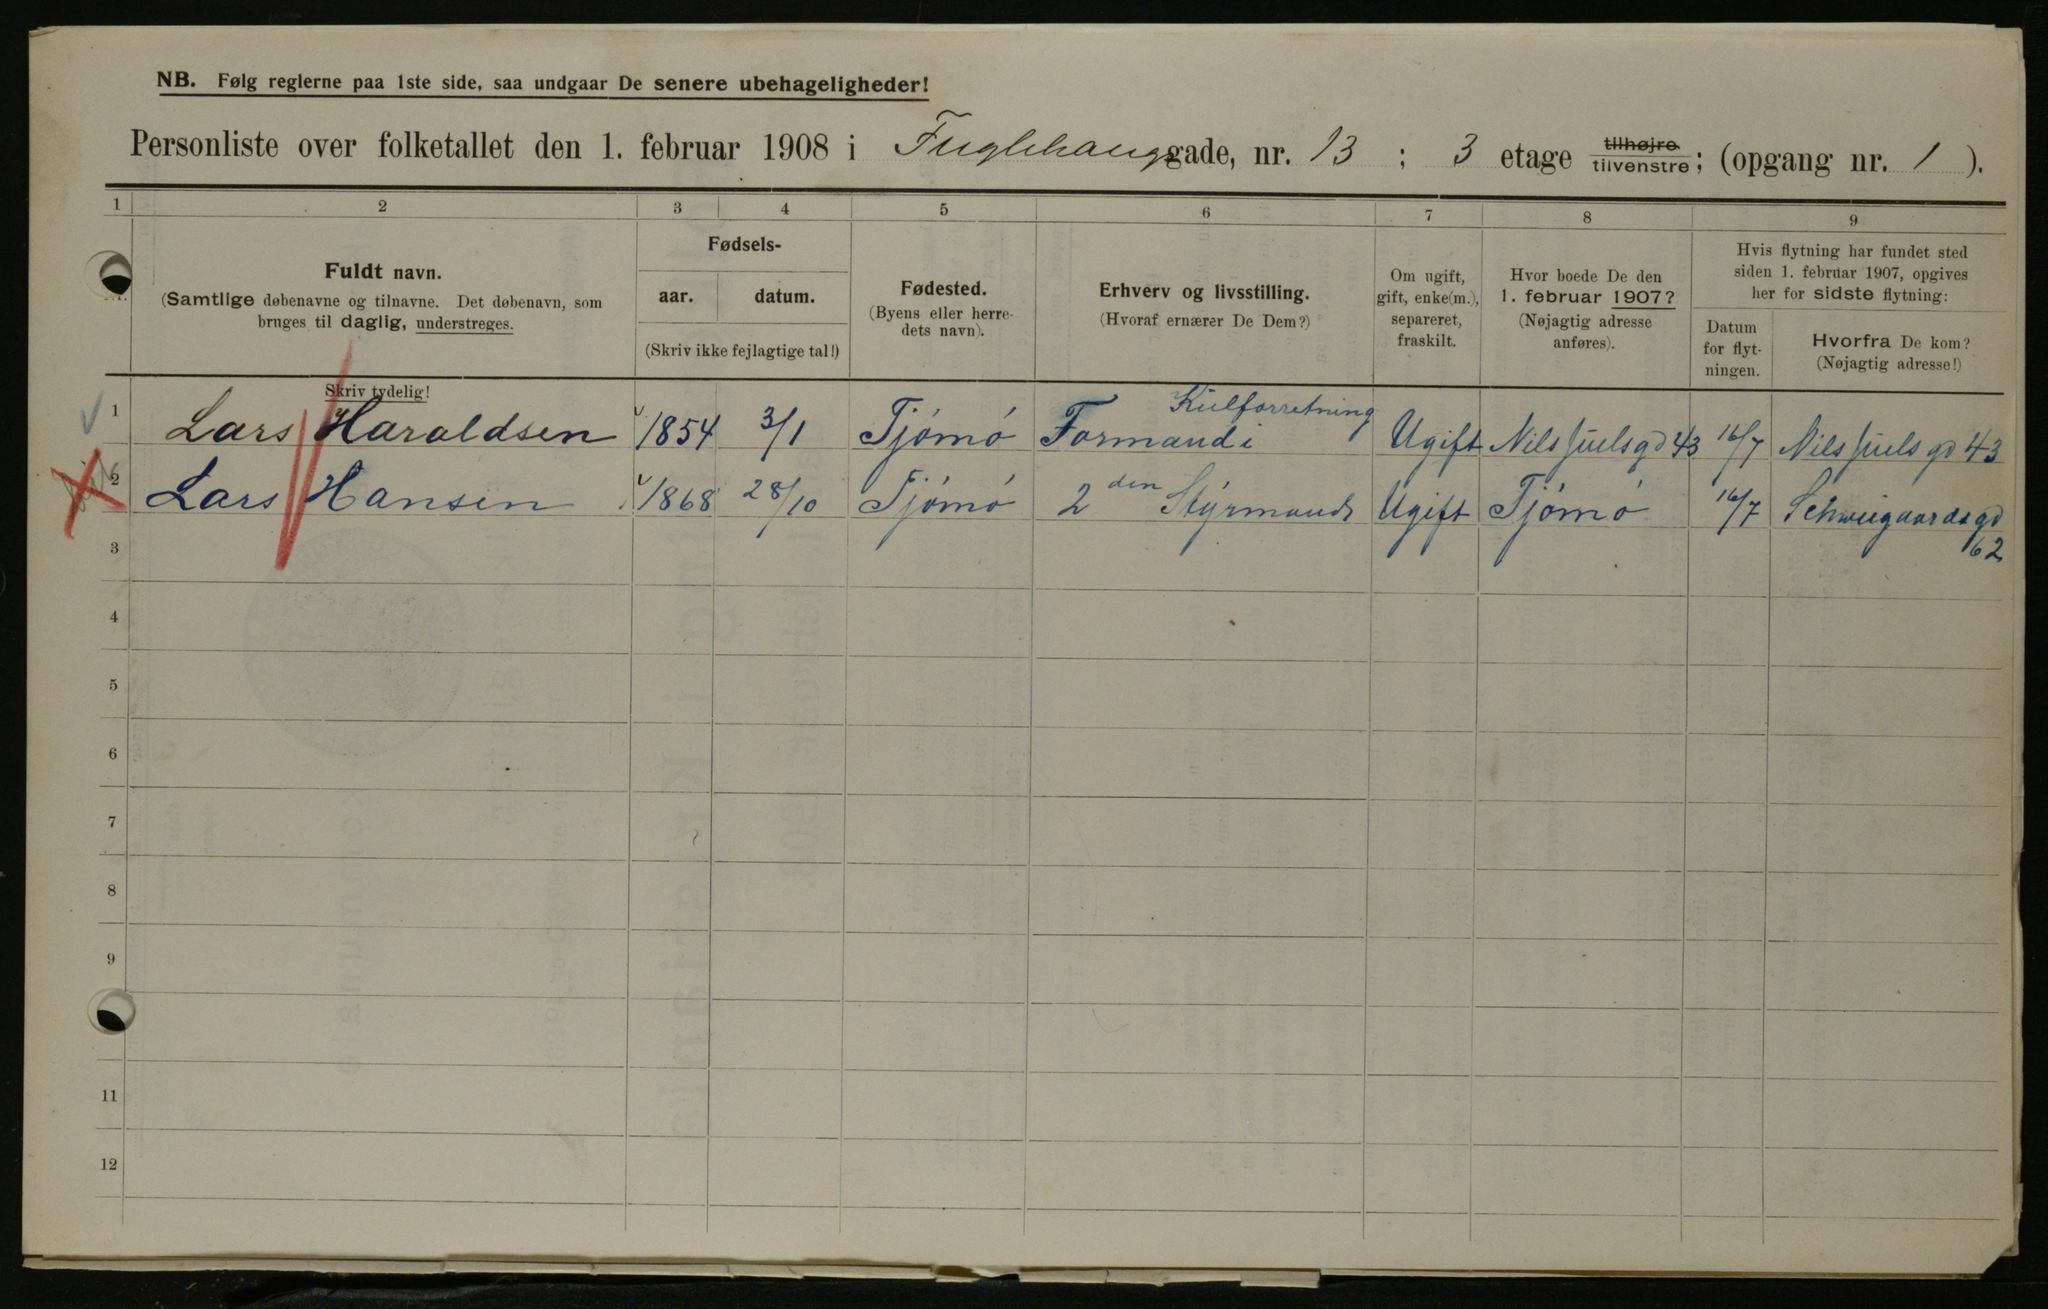 NB. Følg reglerne paa 1ste side, saa undgaar De senere ubehageligheder!
Personliste over folketallet den 1. februar 1908 i Fuglehauggade, nr. 13 ; 3 etage tilhøjre tilvenstre; (opgang nr. 1 ).
1 2 3 4 5 6 7 8 9
Fuldt navn.
(Samtlige døbenavne og tilnavne. Det døbenavn, som
bruges til daglig, understreges.
Skriv tydelig!
Fødsels-
aar. datum.
(Skriv ikke fejlagtige tal!)
Fødested.
(Byens eller herre-
dets navn).
Erhverv og livsstilling.
(Hvoraf ernærer De Dem?)
Om ugift,
gift, enke(m.),
separeret,
fraskilt.
Hvor boede De den
1. februar 1907?
(Nøjagtig adresse
anføres).
Hvis flytning har fundet sted
siden 1. februar 1907, opgives
her for sidste flytning:
Datum
for flyt-
ningen.
Hvorfra De kom?
(Nøjagtig adresse!)
1 Lars Haraldsen 1854 3/1 Tjømø Formand i Kulforretning Ugift Nils Juelsgd 43 16/7 Nils Juels gd 43
2 Lars Hansen 1868 28/10 Tjømø 2den Styrmand Ugift Tjømø 16/7 Schweigaardsgd
62
3
4
5
6
7
8
9
11
12